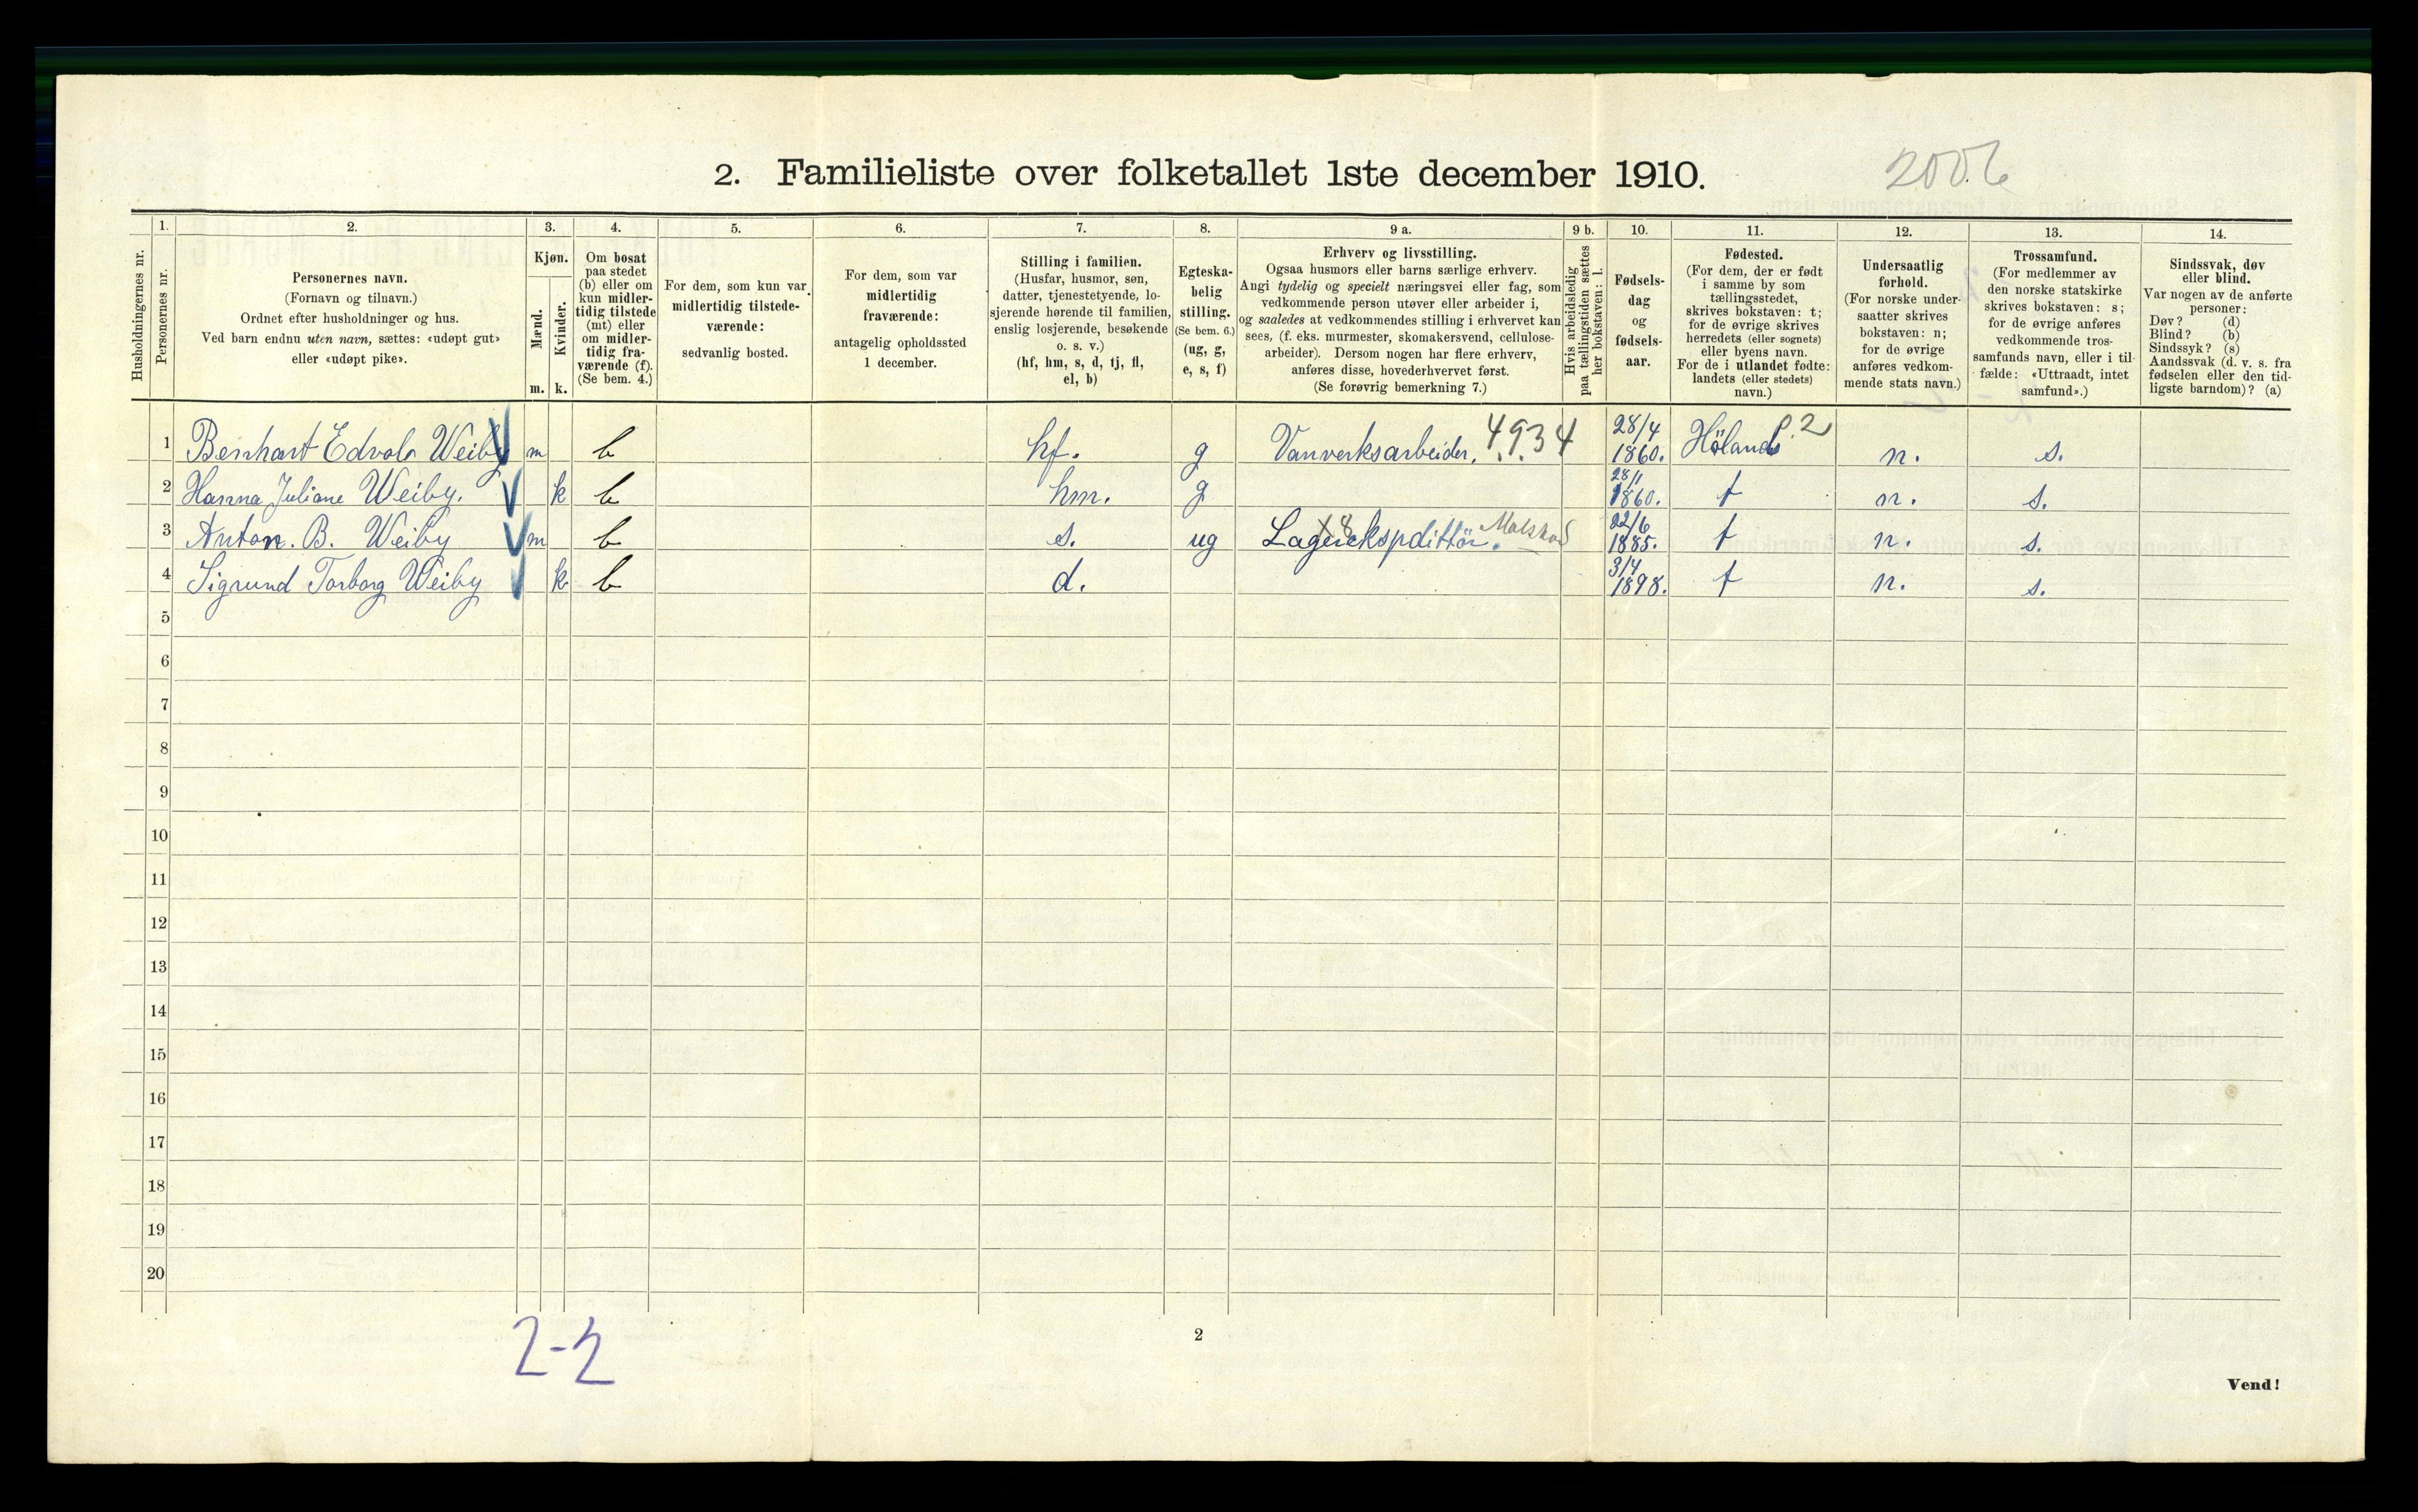 2. Familieliste over folketallet 1ste december 1910.
2006
1. 2. 3. 4. 5. 6. 7. 8. 9 a. 9 b. 10. 11. 12. 13. 14.
Husholdningernes nr.
Personernes nr.
Personernes navn.
(Fornavn og tilnavn.)
Ordnet efter husholdninger og hus.
Ved barn endnu uten navn, sættes: «udøpt gut»
eller «udøpt pike».
Kjøn.
Mænd.
m.
Kvinder.
k.
Om bosat
paa stedet
(b) eller om
kun midler-
tidig tilstede
(mt) eller
om midler-
tidig fra-
værende (f).
(Se bem. 4.)
For dem, som kun var
midlertidig tilstede-
værende:
sedvanlig bosted.
For dem, som var
midlertidig
fraværende:
antagelig opholdssted
1 december.
Stilling i familien.
(Husfar, husmor, søn,
datter, tjenestetyende, lo-
sjerende hørende til familien,
enslig losjerende, besøkende
o. s. v.)
(hf, hm, s, d, tj, fl,
el, b)
Egteska-
belig
stilling.
(Se bem. 6.)
(ug, g,
e, s, f)
Erhverv og livsstilling.
Ogsaa husmors eller barns særlige erhverv.
Angi tydelig og specielt næringsvei eller fag, som
vedkommende person utøver eller arbeider i,
og saaledes at vedkommendes stilling i erhvervet kan
sees, (f. eks. murmester, skomakersvend, cellulose-
arbeider). Dersom nogen har flere erhverv,
anføres disse, hovederhvervet først.
(Se forøvrig bemerkning 7.)
Hvis arbeidsledig
paa tællingstiden sættes
her bokstaven: l.
Fødsels-
dag
og
fødsels-
aar.
Fødested.
(For dem, der er født
i samme by som
tællingsstedet,
skrives bokstaven: t;
for de øvrige skrives
herredets (eller sognets)
eller byens navn.
For de i utlandet fødte:
landets (eller stedets)
navn.)
Undersaatlig
forhold.
(For norske under-
saatter skrives
bokstaven: n;
for de øvrige
anføres vedkom-
mende stats navn.)
Trossamfund.
(For medlemmer av
den norske statskirke
skrives bokstaven: s;
for de øvrige anføres
vedkommende tros-
samfunds navn, eller i til-
fælde: «Uttraadt, intet
samfund».)
Sindssvak, døv
eller blind.
Var nogen av de anførte
personer:
Døv? (d)
Blind? (b)
Sindssyk? (s)
Aandssvak (d. v. s. fra
fødselen eller den tid-
ligste barndom)? (a)
1 Bernhart Edvalo Weiby m b hf. g Vanverksarbeider. 4934 28/4 1860. Hölands 2 n. s.
2 Hanna Juliane Weiby. k b hm. g 28/1 1860. t n. s.
3 Anton. B. Weiby m b s. ug Lagerekspdittör. 22/6 1885. t n. s.
4 Sigrund Torborg Weiby k b d. 3/4 1898. t n. s.
5
6
7
8
9
10
11
12
13
14
15
16
17
18
19
20
2-2
2
Vend!